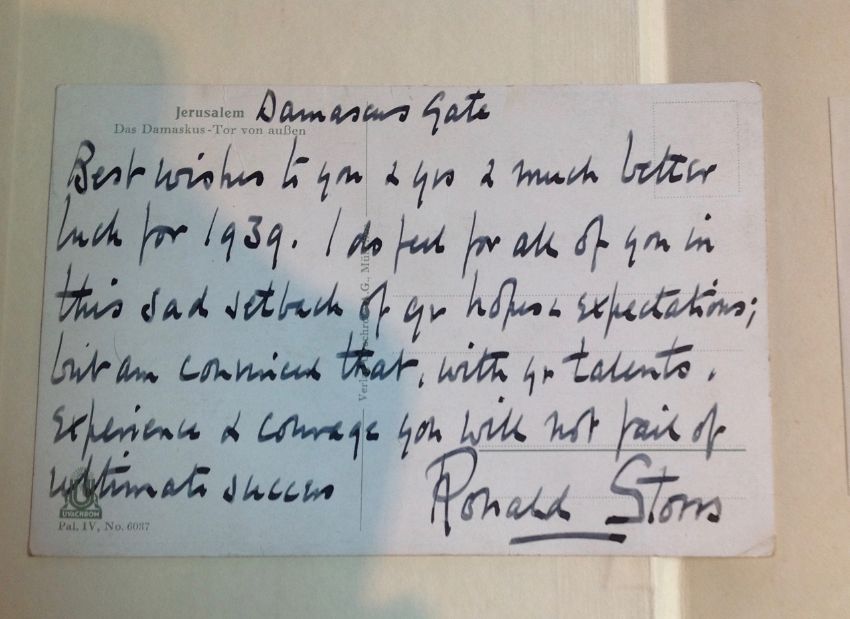 Jerusalem Damascus Gate
Das Damaskus-Tor von außen
Best wishes to you & yrs & much better
luck for 1939. I do feel for all of you in
this sad setback of yr hopes & expectations;
but am convinced that, with yr talents,
experience & courage you will not fail of
ultimate success
Ronald Storrs
UVACHROM
Pal. IV, No. 6037